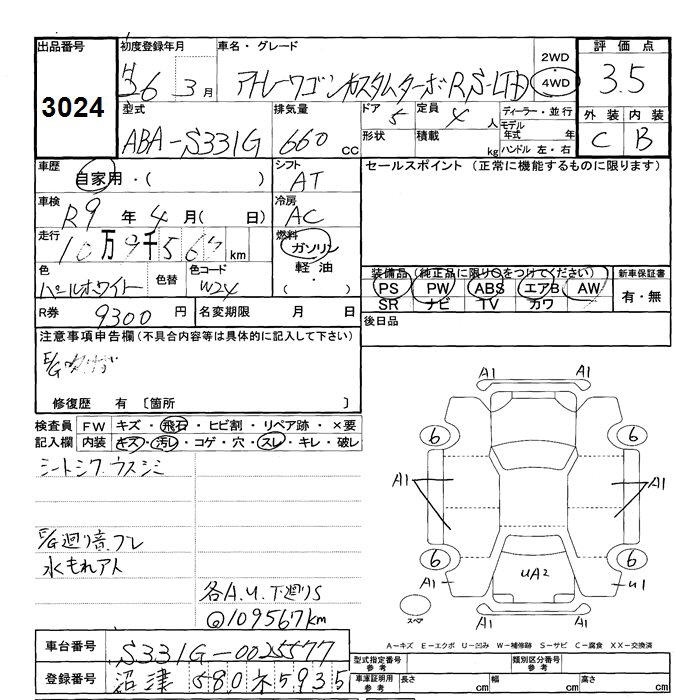 出品番号
3024
初度登録年月
H26 3月
車名・グレード
アトレーワゴンカスタムターボRS-LTD
2WD
4WD
評価点
3.5
型式
ABA-S331G
排気量
660 cc
ドア
5
定員
4 人
形状
積載
kg
ディーラー・並行
モデル年式 年
ハンドル 左・右
外装 内装
C B
車歴
自家用・( )
シフト
AT
セールスポイント (正常に機能するものに限ります)
車検
R9 年 4 月( 日)
冷房
AC
走行
10万9千567 km
燃料
ガソリン
軽油
( ・ )
色
パールホワイト
色替
色コード
W24
装備品(純正品に限り○をつけてください)
新車保証書
PS PW ABS エアB AW
SR ナビ TV カワ
有・無
R券
9300 円
名変期限 月 日
後日品
注意事項申告欄(不具合内容等は具体的に記入して下さい)
E/G
修復歴 有 〔箇所 〕
検査員 FW キズ・飛石・ヒビ割・リペア跡・×要
記入欄 内装 キズ・汚レ・コゲ・穴・スレ・キレ・破レ
シートシワ.ウスシミ
E/G廻り音.ブレ
水もれアト
各A.U.下廻りS
◎109567km
A1 A1
6 6
A1 A1
6 6
A1 UA2 U1
スペア
A-キズ E-エクボ U-凹み W-補修跡 S-サビ C-腐食 XX-交換済
車台番号
S331G-0025577
登録番号
沼津580ホ5935
型式指定番号 参考
類別区分番号 参考
車庫証明用 参考
長さ cm
幅 cm
高さ cm